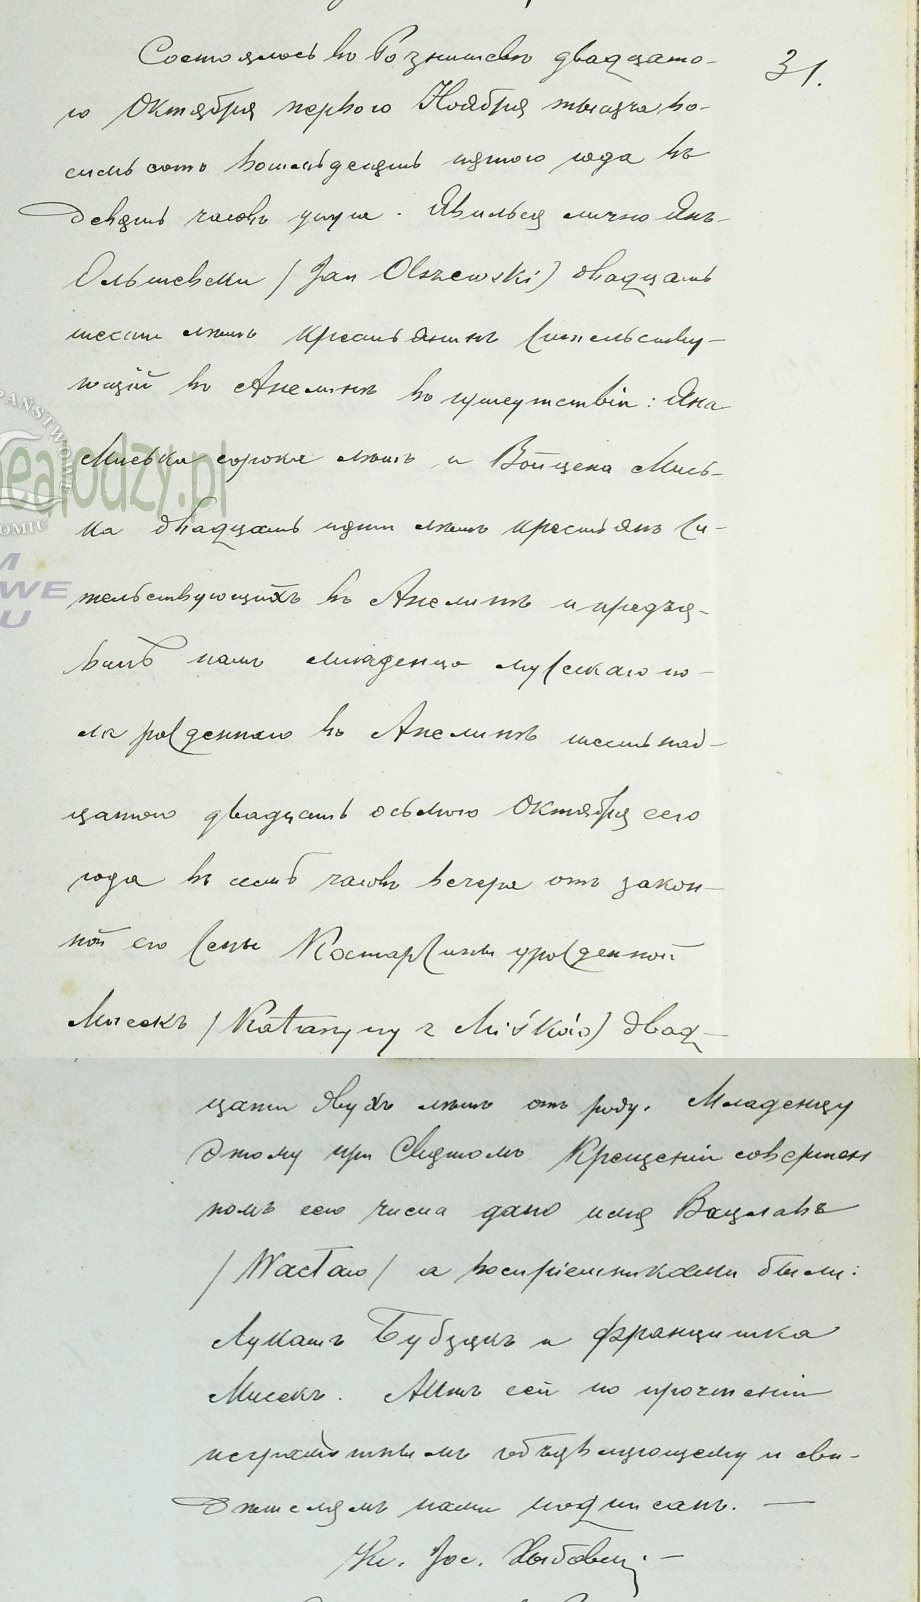 Состоялось въ Рознишевѣ двадцата-
го Октября перваго Ноября тысяча во-
семьсотъ восемьдесятъ пятого года въ
девять часовъ утра. Явился лично Янъ
Ольшевски / Jan Olszewski) двадцать
шести лѣтъ крестьянинъ жительству-
ющій въ Анелинѣ въ присутствіи: Яна
Миська сорока лѣтъ и Войцеха Мись-
ка двадцать пяти лѣтъ крестьянъ жи-
тельствующихъ въ Анелинѣ и предъя-
вилъ намъ младенца мужскаго по-
ла рожденнаго въ Анелинѣ шестнад-
цатого двадцать осьмого Октября сего
года въ семь часовъ вечера отъ закон-
ной его жены Катаржины урожденной
Мисекъ / Katarzyny z Miśków) двад-
цати двухъ лѣтъ отъ роду. Младенцу
этому при Святомъ Крещеніи совершен
номъ сего числа дано имя Вацлавъ
/ Wacław / а воспріемниками были:
Лукашъ Бубзякъ и Францишка
Мисекъ. Актъ сей по прочтеніи
неграмотнымъ объявляющему и сви-
дѣтелямъ нами подписанъ. —
Кс. Jос.
31.
nealodzy.pl
PAŃSTWOWE
OMIU
M
WE
U